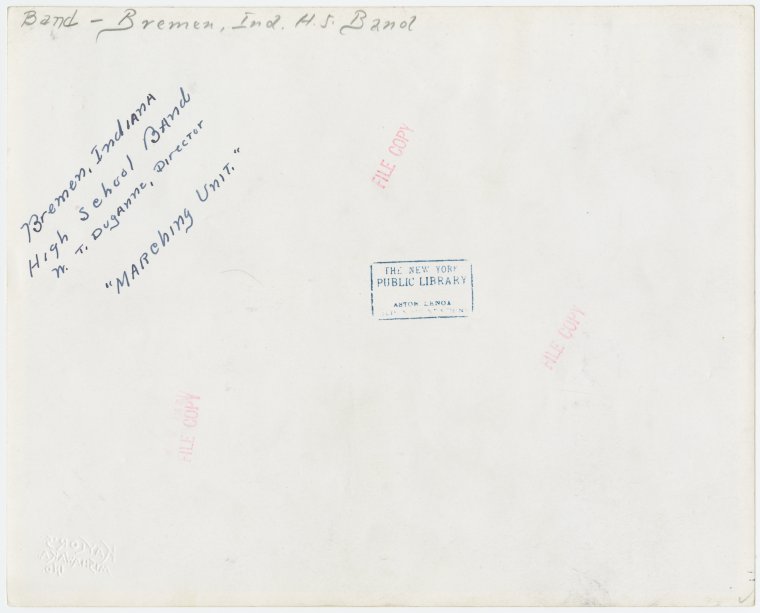 Band - Bremen, Ind. H.S. Band
Bremen, Indiana
High School Band
W. T. Duganne, Director
"Marching Unit."
FILE COPY
THE NEW YORK
PUBLIC LIBRARY
ASTOR, LENOX
FILE COPY
FILE COPY